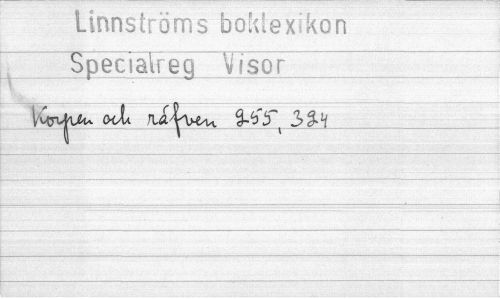 Linnströms boklexikon
Specialreg Visor
Korpen och räfven 255, 324